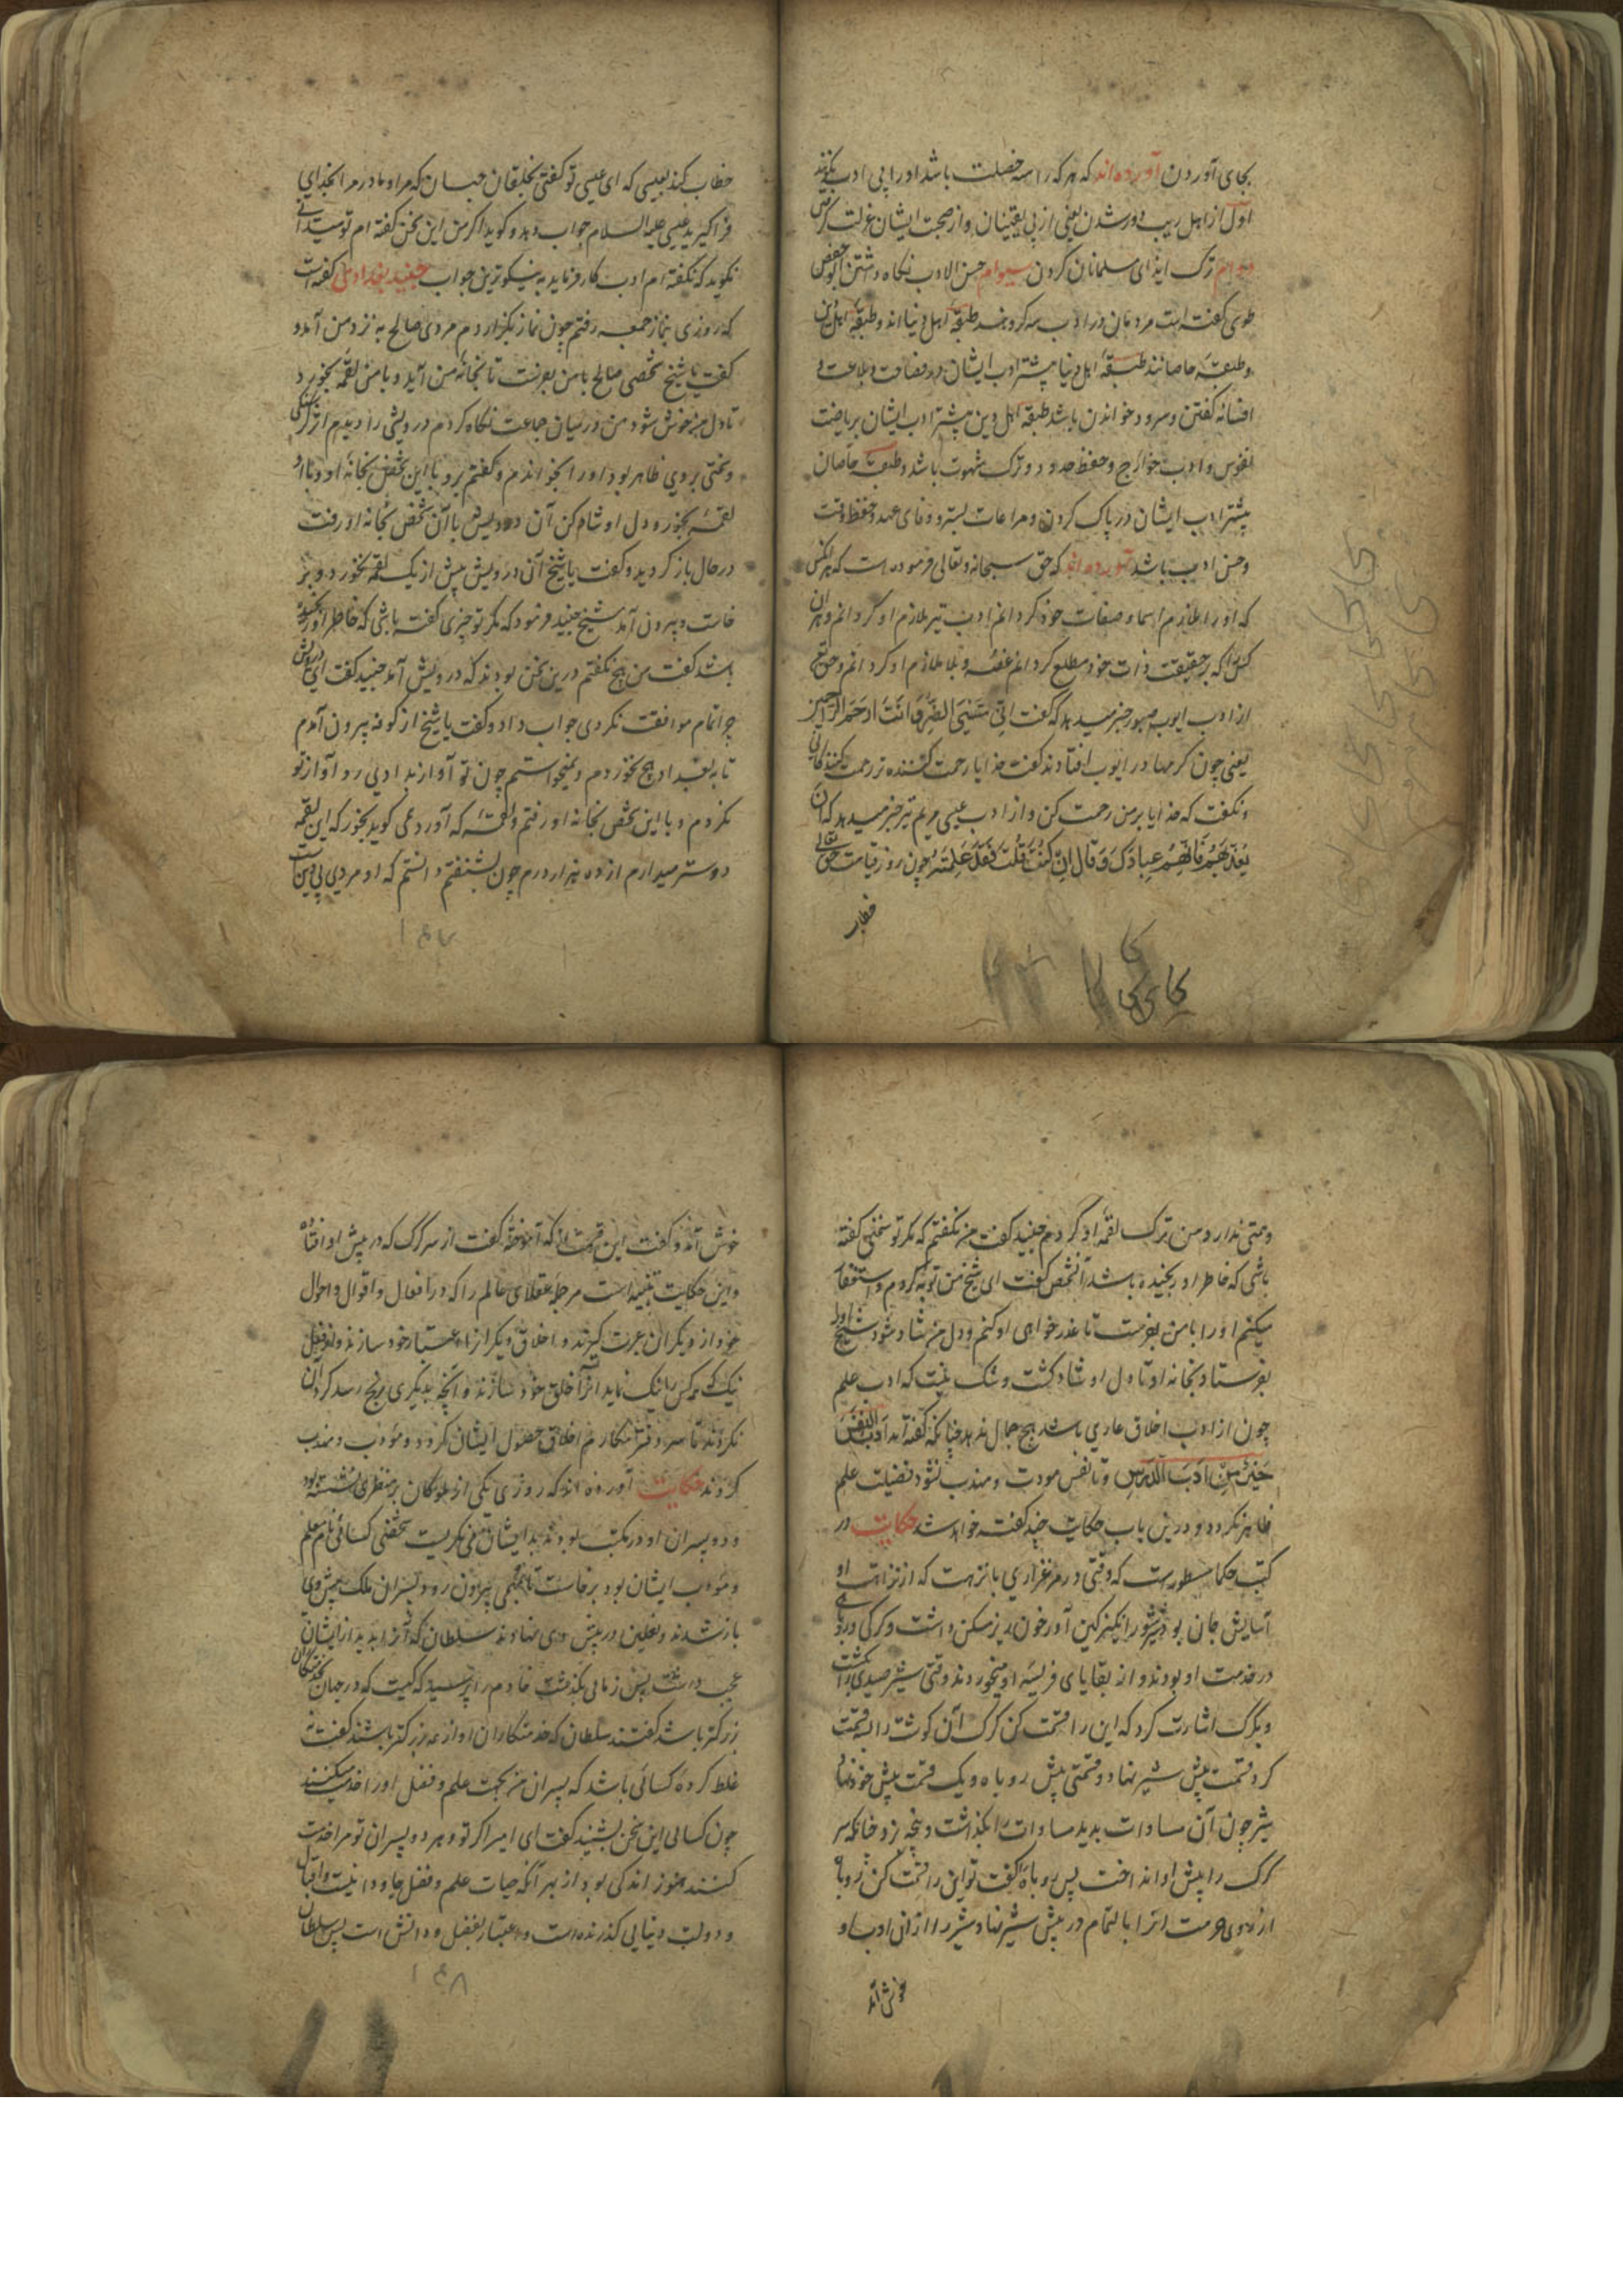 بجای آوردن آورده‌اند که هر که را سه خصلت باشد او را بی ادب نگویند
اول از اهل ریب دور شدن یعنی از بی یقینان و از صحبت ایشان عزلت کردن
دوم ترک ایذای مسلمانان کردن سیوم حسن الادب نگاه داشتن ابو حفص
طوسی گفته است مردمان در ادب سه گروهند طبقه اهل دنیا اند و طبقه اهل دین
و طبقه خاصانند طبقه اهل دنیا بیشتر ادب ایشان در فصاحت و بلاغت و
افسانه گفتن و سرود خواندن باشد طبقه اهل دین بیشتر ادب ایشان بریاضت
نفوس و ادب جوارح و حفظ حدود و ترک شهوت باشد و طبقه خاصان
بیشتر ادب ایشان در پاک کردن و مراعات لستر و وفای عهد و حفظ وقت
و حسن ادب باشد آورده‌اند که حق سبحانه و تعالی فرموده است که هر آنکس
که او را ملازم اسما و صفات خود گردانم ادب نیز ملازم او گردانم و هر آن
کس را که بر حقیقت ذات خود مطلع گردانم غصه و بلا ملازم او گردانم و حق تعالی
از ادب ایوب صبور خبر میدهد که گفت انی مسنی الضر و انت ارحم الراحمین
یعنی چون کرمها در ایوب افتادند گفت خدایا رحمت کننده تر رحمت کنندگانی
و نگفت که خدایا بر من رحمت کن و از ادب عیسی مریم نیز خبر میدهد که ان
تعذبهم فانهم عبادک و قال ان کنت قلت فقد علمته چون روز قیامت حق تعالی
خطاب
خطاب کند بعیسی که ای عیسی تو گفتی بخلقان جهان که مرا و مادر مرا بخدای
فرا گیرید عیسی علیه السلام جواب دهد و گوید اگر من این سخن گفته ام تو میدانی
نگوید که نگفته ام ادب کار فرماید به نیکوترین جواب جنید بغدادی گفته است
که روزی بنماز جمعه رفتم چون نماز بگزاردم مردی صالح به نزد من آمد و
گفت یا شیخ شخصی صالح با من بفرست تا بخانه من آید و با من لقمه بخورد
تا دل من خوش شود من در میان جماعت نگاه کردم درویشی را دیدم اثر گرسنگی
و سختی بروی ظاهر بود او را بخواندم و گفتم برو با این شخص بخانه او و با او
لقمه بخور و دل او شاد کن آن درویش با آن شخص بخانه او رفت
در حال باز گردید و گفت یا شیخ آن درویش بیش از یک لقمه نخورد و بر
خاست و بیرون آمد شیخ جنید فرمود که مگر تو چیزی گفته باشی که خاطر او رنجیده
باشد گفت من هیچ نگفتم درین سخن بودند که درویش آمد جنید گفت ای درویش
چرا تمام موافقت نکردی جواب داد و گفت یا شیخ از کوفه بیرون آمدم
تا به بغداد هیچ نخوردم و نمیخواستم چون تو آواز بدادی رد آواز تو
نکردم و با این شخص بخانه او رفتم و لقمه که آورد می گوید بخور که این لقمه
دوستر میدارم از ده هزار درم چون بشنفتم دانستم که او مردی بی دین است
۱۴۷
و همتی ندارد من ترک لقمه او کردم جنید گفت من نگفتم که مگر تو سخنی گفته
باشی که خاطر او رنجیده باشد آنشخص گفت ای شیخ من توبه کردم و استغفار
میکنم او را با من بفرست تا عذر خواهی او کنم و دل من شاد شود شیخ او را
بفرستاد بخانه او تا دل او شاد گشت و شک نیست که ادب علم
چون از ادب اخلاق عاری باشد هیچ جمال ندهد چنانکه گفته اند ادب النفس
خیر من ادب الدرس و تا نفس مودب و مهذب نشود فضیلت علم
ظاهر نگردد و درین باب حکایت چند گفته خواهد شد حکایت در
کتب حکما مسطورست که وقتی در مرغزاری با نزهت که از نزاهت او
آسایش جان بود شیر شور انگیز کین آور خون ریز مسکن داشت و گرگی و روباهی
در خدمت او بودند و از بقایای فریسه او میخوردند وقتی شیر صیدی را بکشت
و بگرگ اشارت کرد که این را قسمت کن گرگ آن گوشت را سه قسمت
کرد قسمت پیش شیر نهاد و قسمتی پیش روباه و یک قسمت پیش خود نهاد
شیر چون آن مساوات بدید مساوات را بگذاشت و پنجه بزد چنانکه سر
گرگ را پیش او انداخت پس روباه را گفت تو این را قسمت کن روباه
از روی حرمت آنرا بالتمام در پیش شیر نهاد شیر را از آن ادب او
خوش آمد
خوش آمد و گفت این قسمت از که آموختهٔ گفت از سر گرگ که در پیش او افتاد
و این حکایت تنبیه است مر جمله عقلای عالم را که در افعال و اقوال و احوال
خود از دیگران عبرت گیرند و اخلاق دیگر از اعتبار خود سازند و از فعل
نیک که هر کس را نیک نماید آنرا خلق خود سازند و آنچه بدیگری رنج رسد گرد آن
نگردند تا سر دفتر مکارم اخلاق حصول ایشان گردد و مؤدب و مهذب
گردند حکایت آورده اند که روزی یکی از ملوکان بر منظری نشسته بود
و دو پسران او در مکتب بودند بدایشان می نگریست شخصی کسائی نام معلم
و مؤدب ایشان بود برخاست تا بمهمی بیرون رود پسران ملک پیش وی
باز شدند و نعلین در پیش وی نهادند سلطان که آنرا بدید از ایشان
عجب داشت پس زمانی بگذشت خادم را پرسید که کیست که در جهان خدمتکاران
بزرگتر باشد گفتند سلطان که خدمتکاران او از همه بزرگتر باشند گفت نه
غلط کرده کسائی باشد که پسران من بجهت علم و فضل او را خدمت میکنند
چون کسائی این سخن بشنید گفت ای امیر اگر تو و هر دو پسران تو مرا خدمت
کنند هنوز اندکی بود از بهر آنکه حیات علم و فضل جاودانیست و اقبال
و دولت دنیایی گذرنده است و اعتبار بفضل و دانش است پس سلطان
۱۴۸